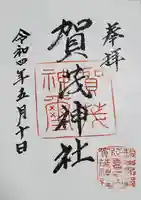 奉拝
賀茂神社
賀茂
神璽
令和四年五月十日